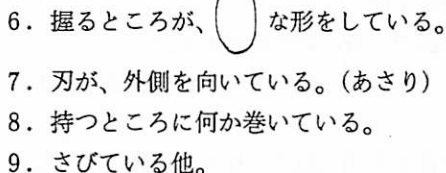 6．握るところが、 な形をしている。
7．刃が、外側を向いている。（あさり）
8．持つところに何か巻いている。
9．さびている他。